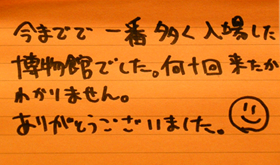 今までで一番多く入場した
博物館でした。何十回来たか
わかりません。
ありがとうございました。